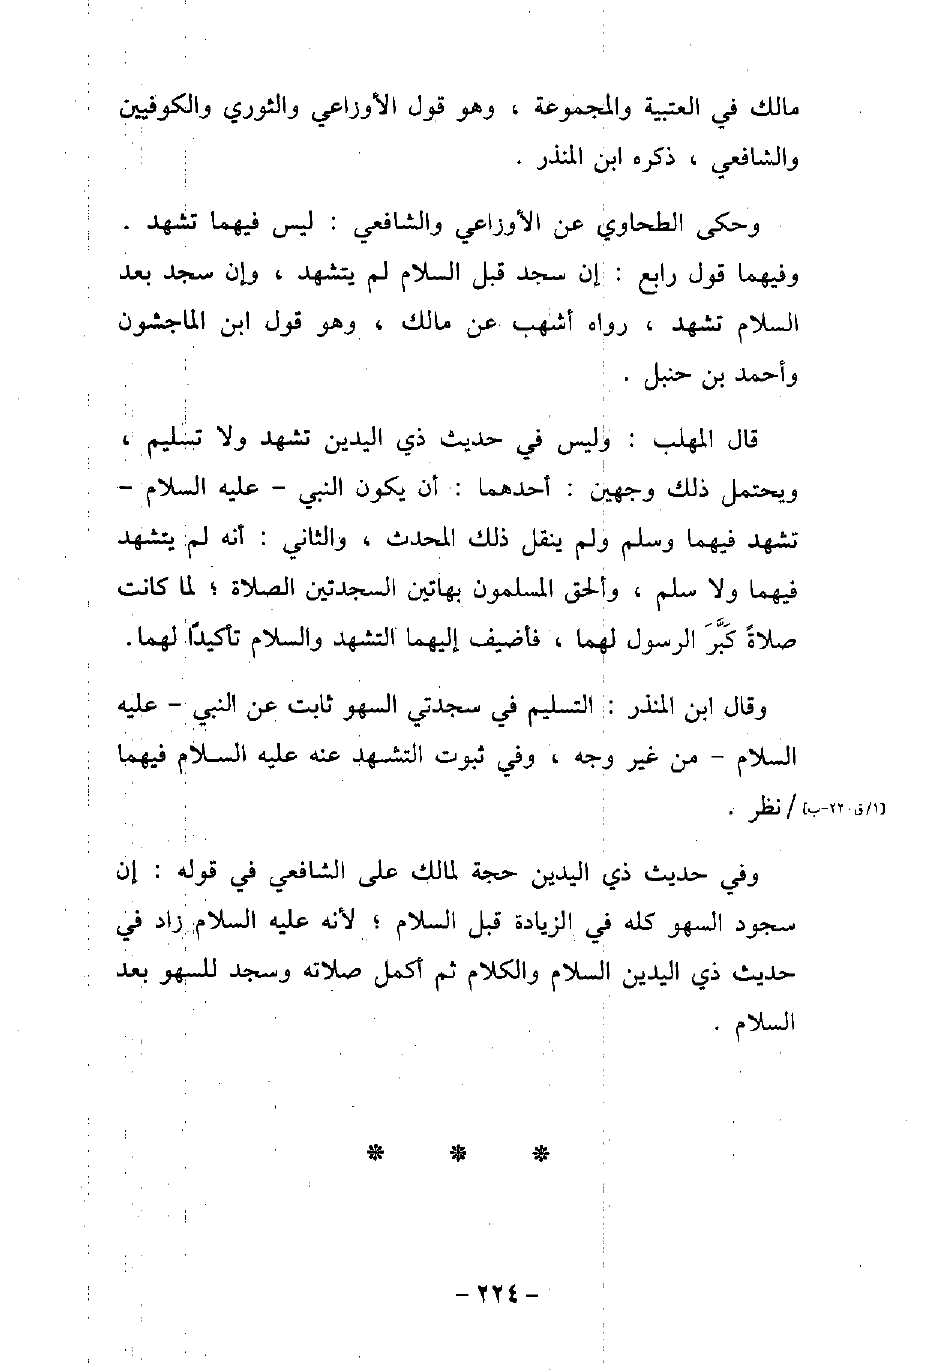 مالك في العتبية والمجموعة ، وهو قول الأوزاعي والثوري والكوفيين
والشافعي ، ذكره ابن المنذر .
وحكى الطحاوي عن الأوزاعي والشافعي : ليس فيهما تشهد .
وفيهما قول رابع : إن سجد قبل السلام لم يتشهد ، وإن سجد بعد
السلام تشهد ، رواه أشهب عن مالك ، وهو قول ابن الماجشون
وأحمد بن حنبل .
قال المهلب : وليس في حديث ذي اليدين تشهد ولا تسليم ،
ويحتمل ذلك وجهين : أحدهما : أن يكون النبي - عليه السلام -
تشهد فيهما وسلم ولم ينقل ذلك المحدث ، والثاني : أنه لم يتشهد
فيهما ولا سلم ، وألحق المسلمون بهاتين السجدتين الصلاة ؛ لما كانت
صلاةً كَبَّرَ الرسول لهما ، فأضيف إليهما التشهد والسلام تأكيدًا لهما.
وقال ابن المنذر : التسليم في سجدتي السهو ثابت عن النبي - عليه
السلام - من غير وجه ، وفي ثبوت التشهد عنه عليه السلام فيهما
[١/ق٢٢٠-ب] / نظر .
وفي حديث ذي اليدين حجة لمالك على الشافعي في قوله : إن
سجود السهو كله في الزيادة قبل السلام ؛ لأنه عليه السلام زاد في
حديث ذي اليدين السلام والكلام ثم أكمل صلاته وسجد للسهو بعد
السلام .
* * *
- ٢٢٤ -